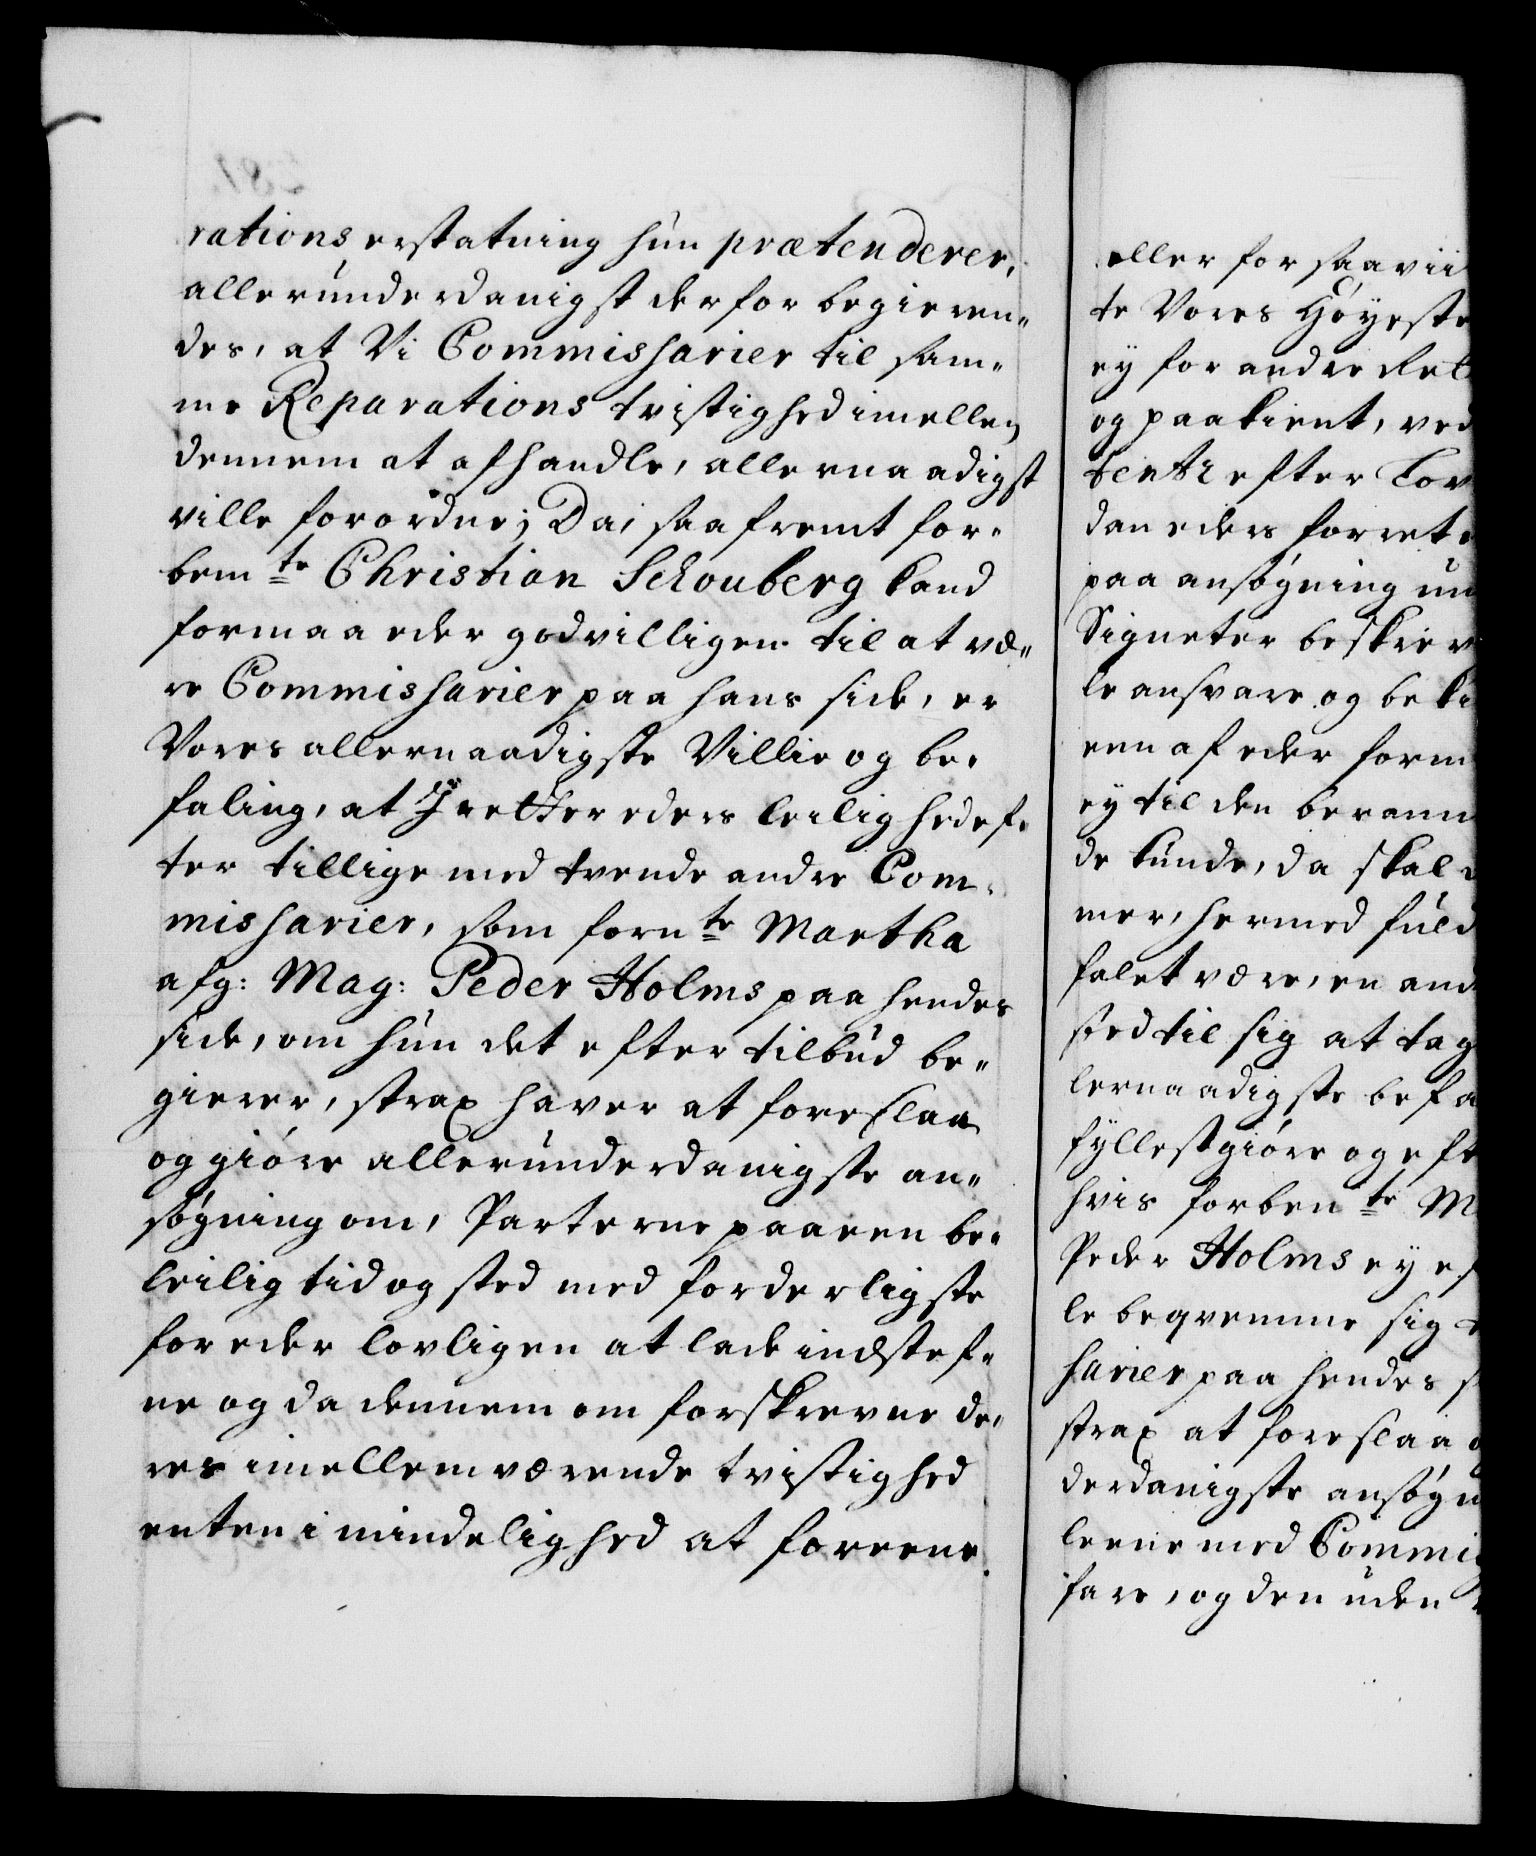 rations erstatning hun prætenderer,
allerunderdanigst derfor begieren-
des, at Vi Commissarier til sam-
me Reparations tvistighed imellem
dennem at afhandle, allernaadigst
ville forordne; Da, saafremt for-
bemte Christian Schouberg kand
formaa eder godvilligen til at væ-
re Commissarier paa hans side, er
Vores allernaadigste Villie og be-
faling, at I retter eders leilighed ef-
ter tillige med tvende andre Com-
missarier, som fornte Martha
afg: Mag: Peder Holms paa hendes
side, om hun det efter tilbud be-
gierer, strax haver at foreslaa
og giöre allerunderdanigste an-
søgning om, Parterne paa en be-
leilig tid og sted med forderligste
for eder lovligen at lade indstef-
ne og da dennem om forskrevne de-
res imellemværende tvistighed
enten i mindelighed at foreene
eller for saa vii
te Vores Höyeste
ey for andre Ret
og paakient, ved
tentz efter Lov
dan eders forret
paa ansøgning un
Signeter beskrev
le ansvare og beki
enn af eder form
ey til den beram
de kunde, da skal
mer, hermed fuld
falet være, en and
sted til sig at tag
lernaadigste befa
fyllestgiöre og eft
hvis forbente M
Peder Holms ey ef
le beqvemme sig
sarier paa hendes s
strax at foreslaa o
derdanigste ansøgn
leene med Commis
fare, og den uden